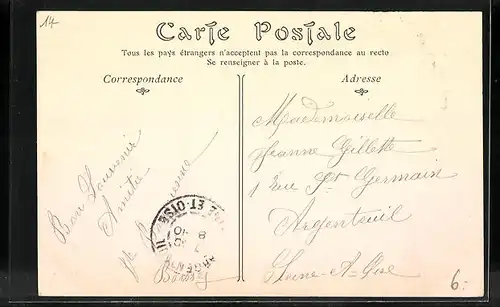 14
Carte Postale
Tous les pays étrangers n'acceptent pas la correspondance au recto
Se renseigner à la poste.
Correspondance
Adresse
Bon Souvenir
Amitié
Mademoiselle
Jeanne Gillette
1 Rue St Germain
Argenteuil
Seine-&-Oise
ET-OISE
6.-